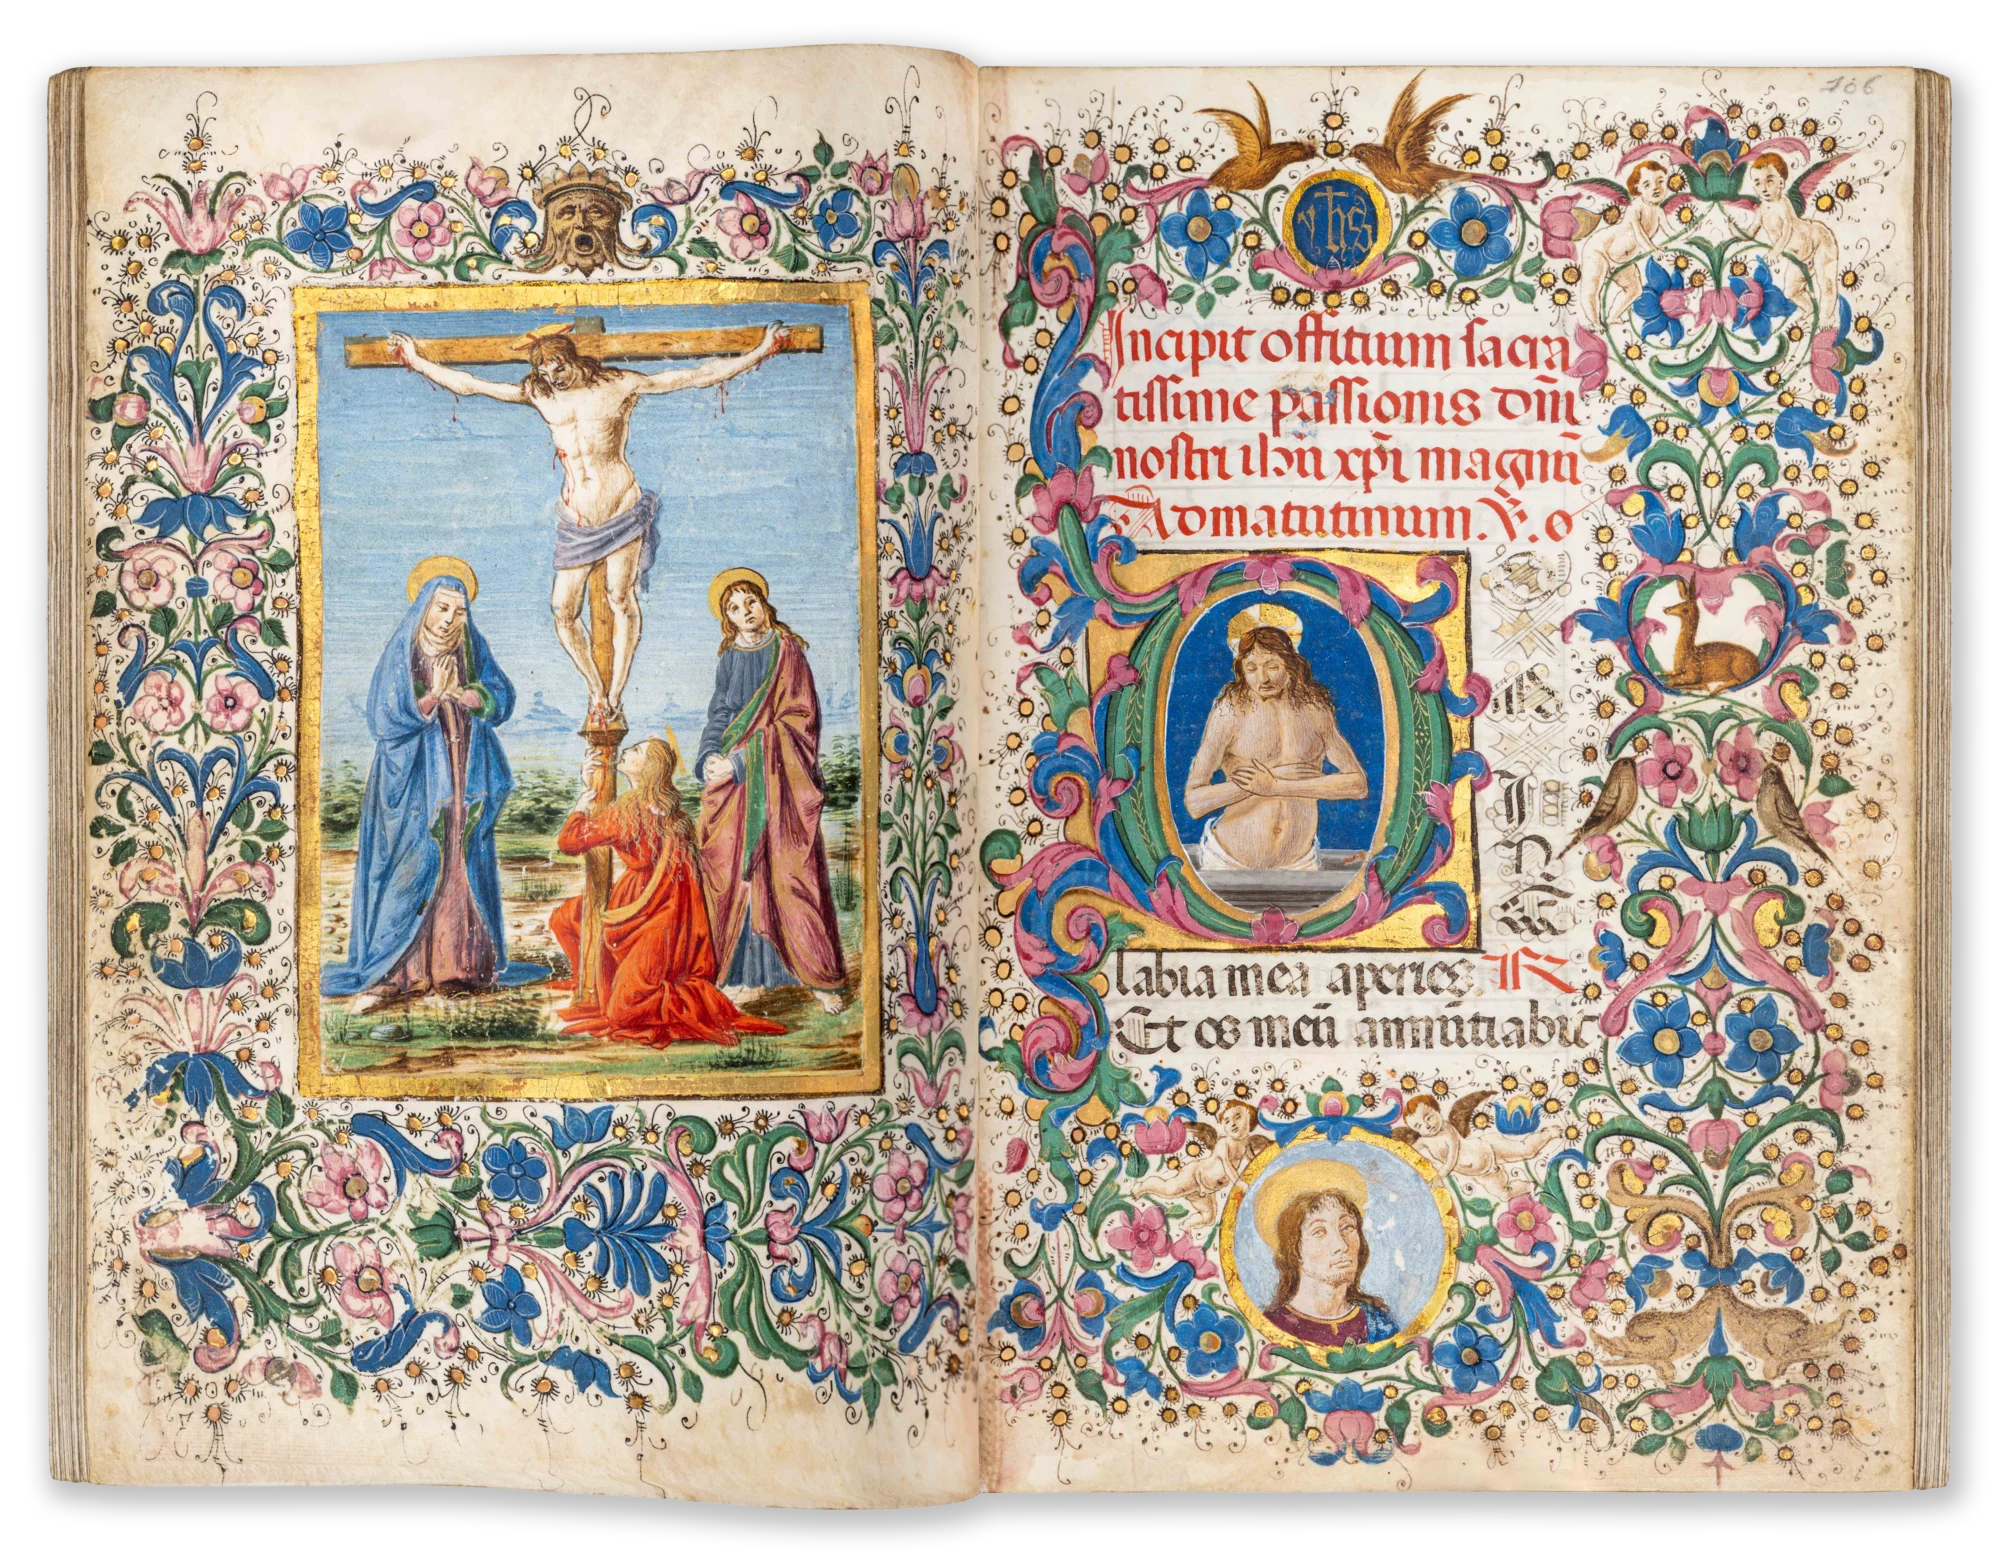 yhs
Incipit offitium sacra
tissime passionis dn̄i
nostri ihū xp̄i magnū
Ad matutinum. ℣. o
DOMINE
labia mea aperies. ℟
Et os meū annūtiabit